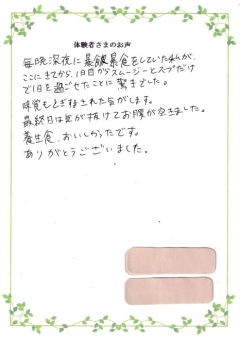 体験者さまのお声
毎晩深夜に暴飲暴食をしていた私が、
ここにきてから、1日目からスムージーとスープだけ
で1日を過ごせたことに驚きでした。
味覚もとぎすまされた気がします。
最終日は気が抜けてお腹が空きました。
養生食、おいしかったです。
ありがとうございました。